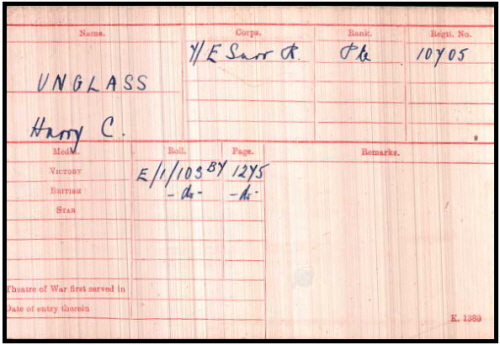 Name. Corps. Rank. Regtl. No.
E Surr R. Pte 10705
UNGLASS
Harry C.
Medal. Roll. Page. Remarks.
VICTORY E/1/103 B7 1275
BRITISH -do- -do-
STAR
Theatre of War first served in
Date of entry therein
K. 1380